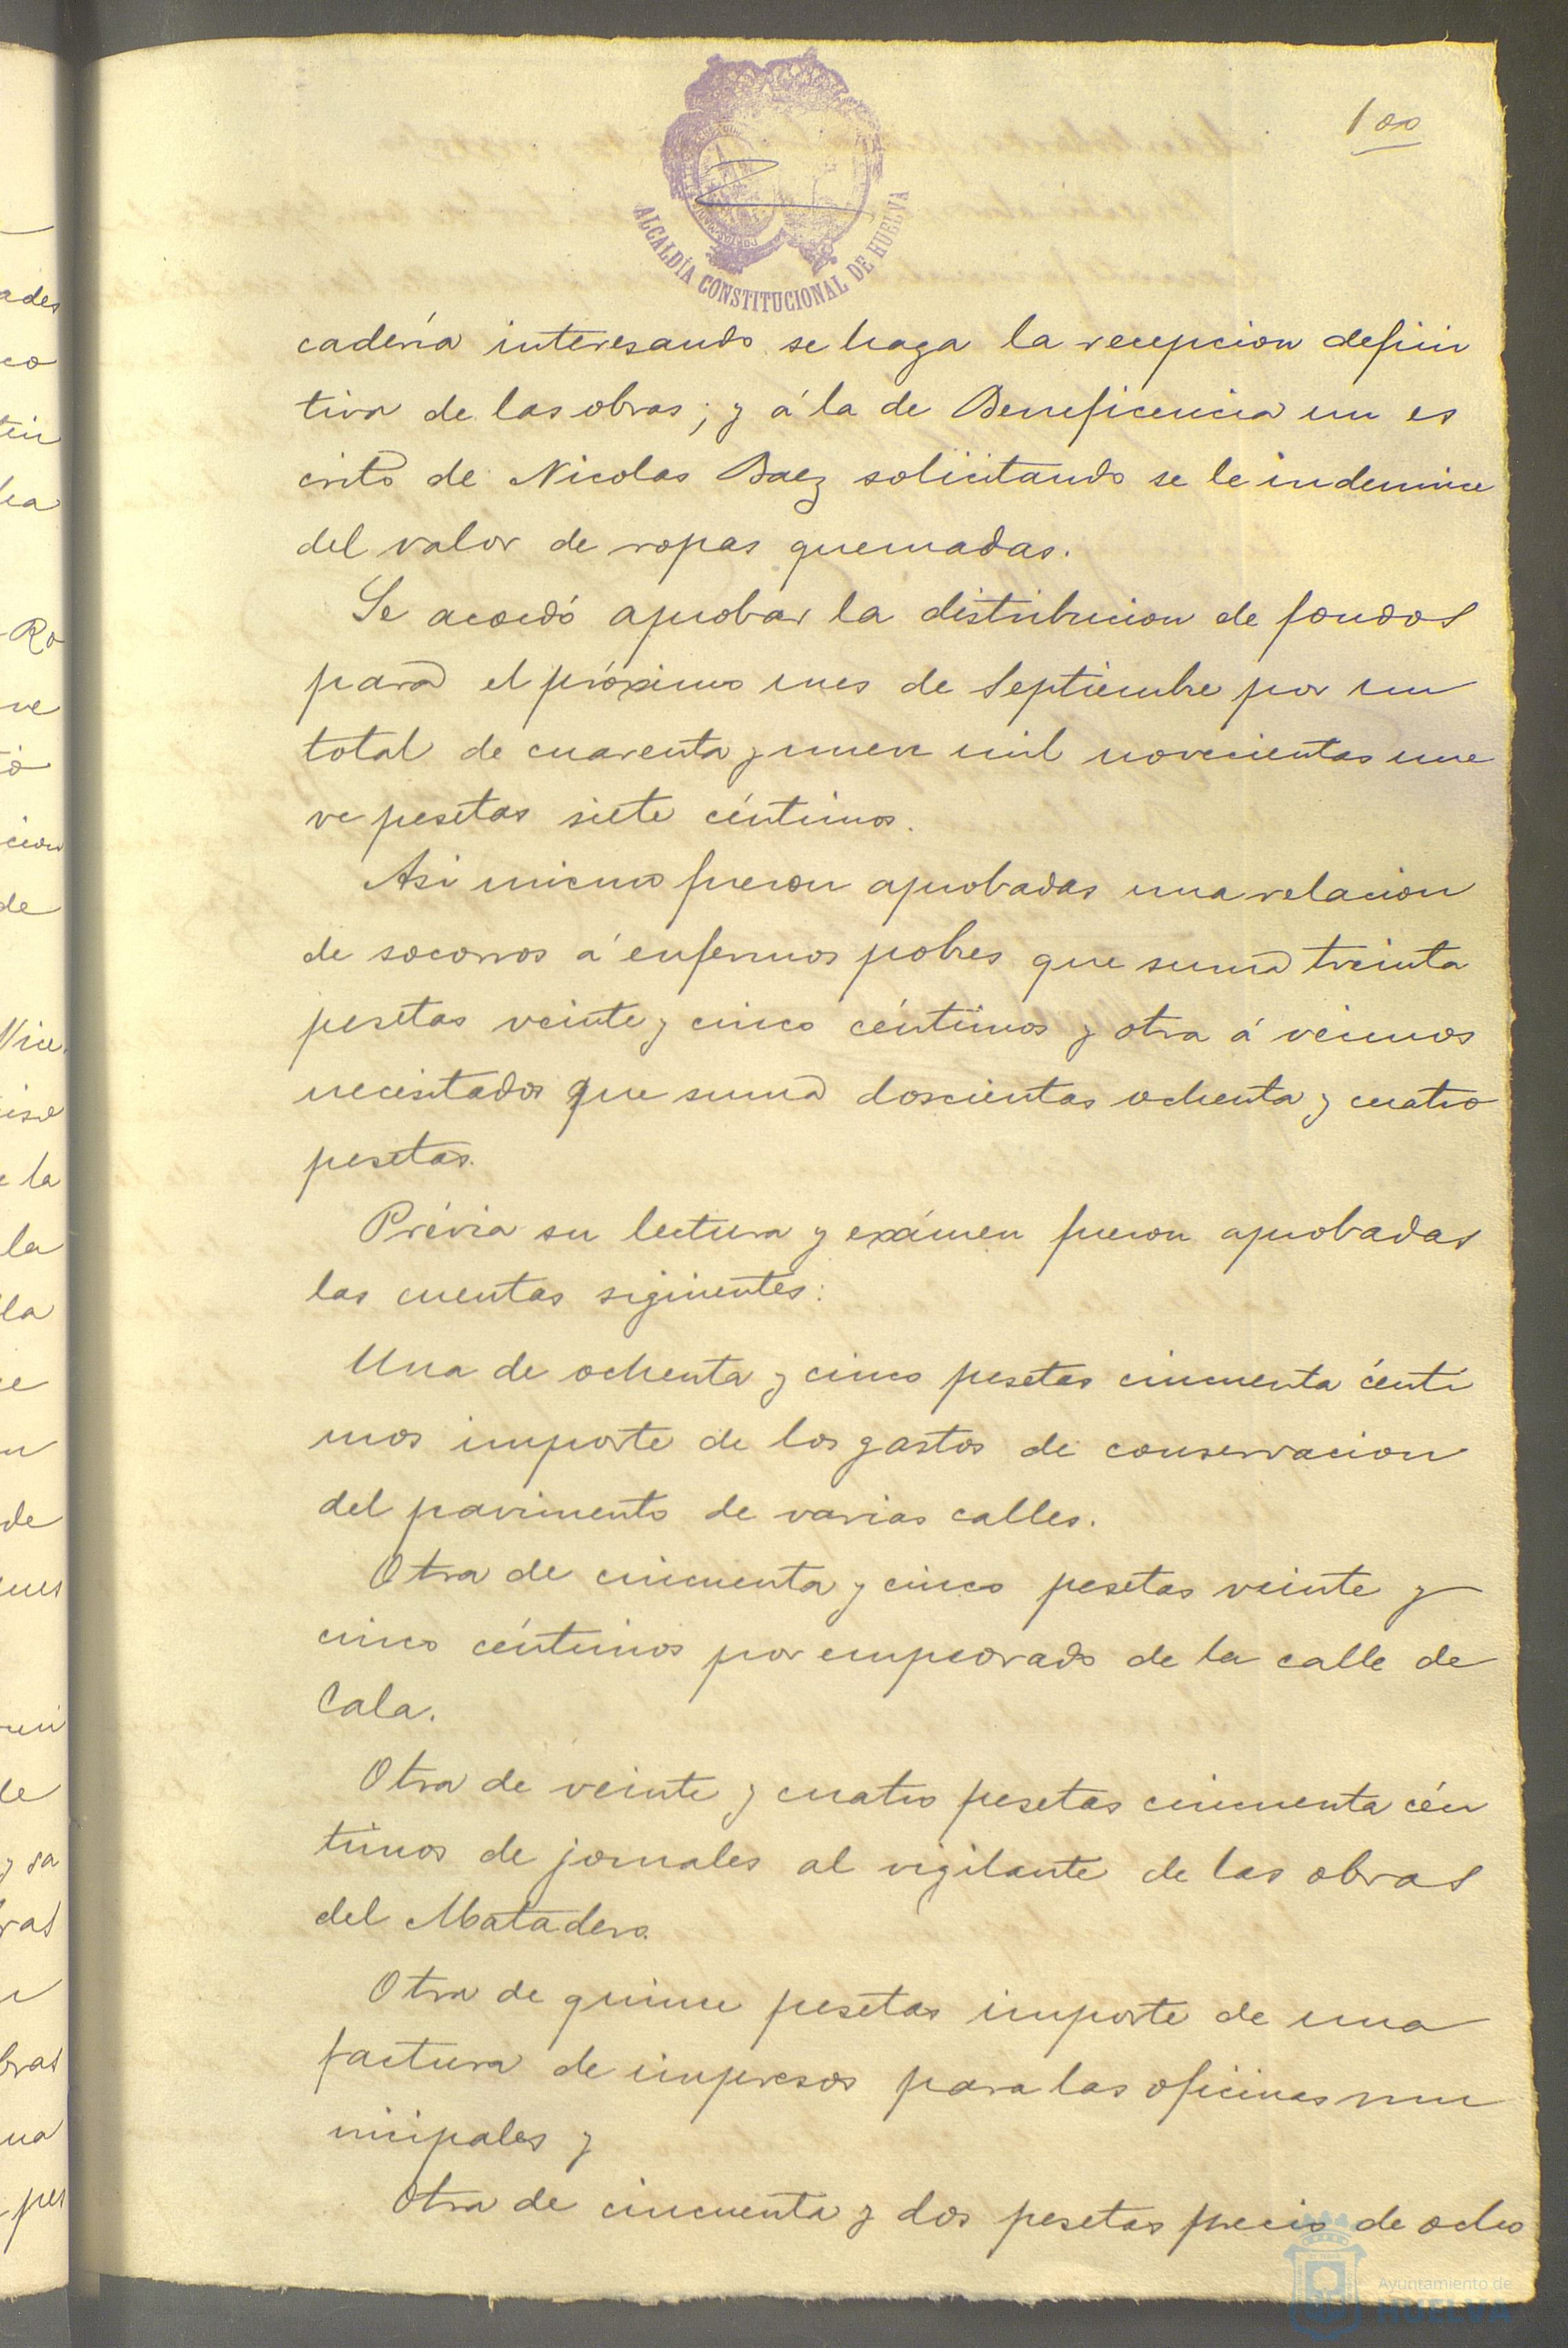 100
ALCALDÍA CONSTITUCIONAL DE HUELVA
cadería interesando se haga la recepcion defini
tiva de las obras; y á la de Beneficencia un es
crito de Nicolas Baez solicitando se le indemnice
del valor de ropas quemadas.
Se acordó aprobar la distribucion de fondos
para el próximo mes de Septiembre por un
total de cuarenta y nueve mil novecientas nue
ve pesetas siete céntimos.
Asi mismo fueron aprobadas una relacion
de socorros á enfermos pobres que suma treinta
pesetas veinte y cinco céntimos y otra á vecinos
necesitados que suma doscientas ochenta y cuatro
pesetas.
Prévia su lectura y exámen fueron aprobadas
las cuentas siguientes:
Una de ochenta y cinco pesetas cincuenta cénti
mos importe de los gastos de conservacion
del pavimento de varias calles.
Otra de cincuenta y cinco pesetas veinte y
cinco céntimos por empedrado de la calle de
Cala.
Otra de veinte y cuatro pesetas cincuenta cén
timos de jornales al vigilante de las obras
del Matadero.
Otra de quince pesetas importe de una
factura de impresos para las oficinas mu
nicipales y
Otra de cincuenta y dos pesetas precio de ocho
Ayuntamiento de
HUELVA